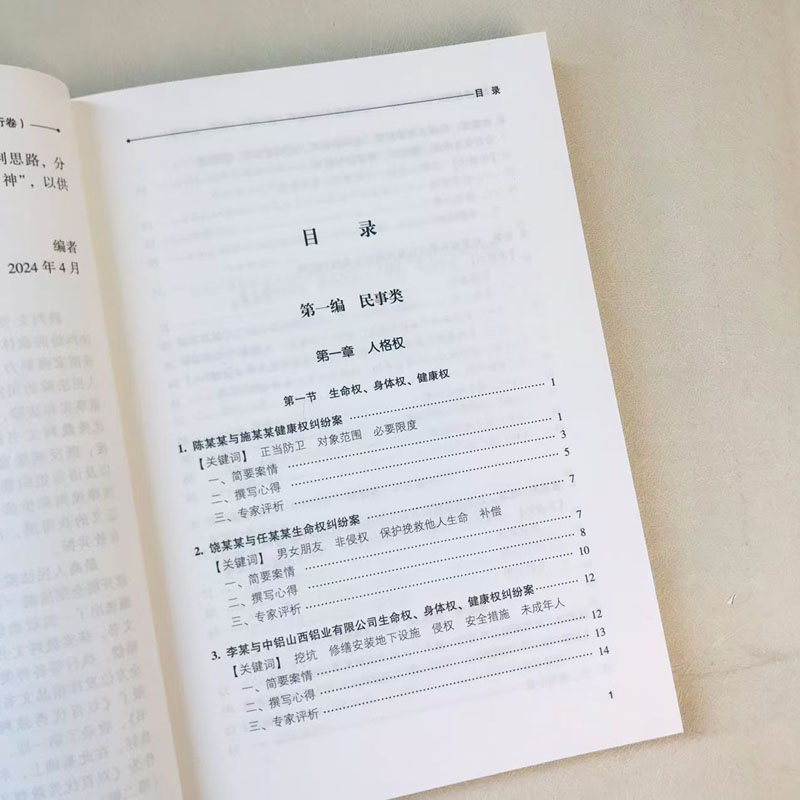 行卷）
判思路，分
神”，以供
编者
2024年4月
目 录
目 录
第一编 民事类
第一章 人格权
第一节 生命权、身体权、健康权
1. 陈某某与施某某健康权纠纷案 …… 1
【关键词】 正当防卫 对象范围 必要限度
一、简要案情 …… 1
二、撰写心得 …… 3
三、专家评析 …… 5
2. 饶某某与任某某生命权纠纷案 …… 7
【关键词】 男女朋友 非侵权 保护挽救他人生命 补偿
一、简要案情 …… 7
二、撰写心得 …… 8
三、专家评析 …… 10
3. 李某与中铝山西铝业有限公司生命权、身体权、健康权纠纷案 …… 12
【关键词】 挖坑 修缮安装地下设施 侵权 安全措施 未成年人
一、简要案情 …… 12
二、撰写心得 …… 13
三、专家评析 …… 14
1